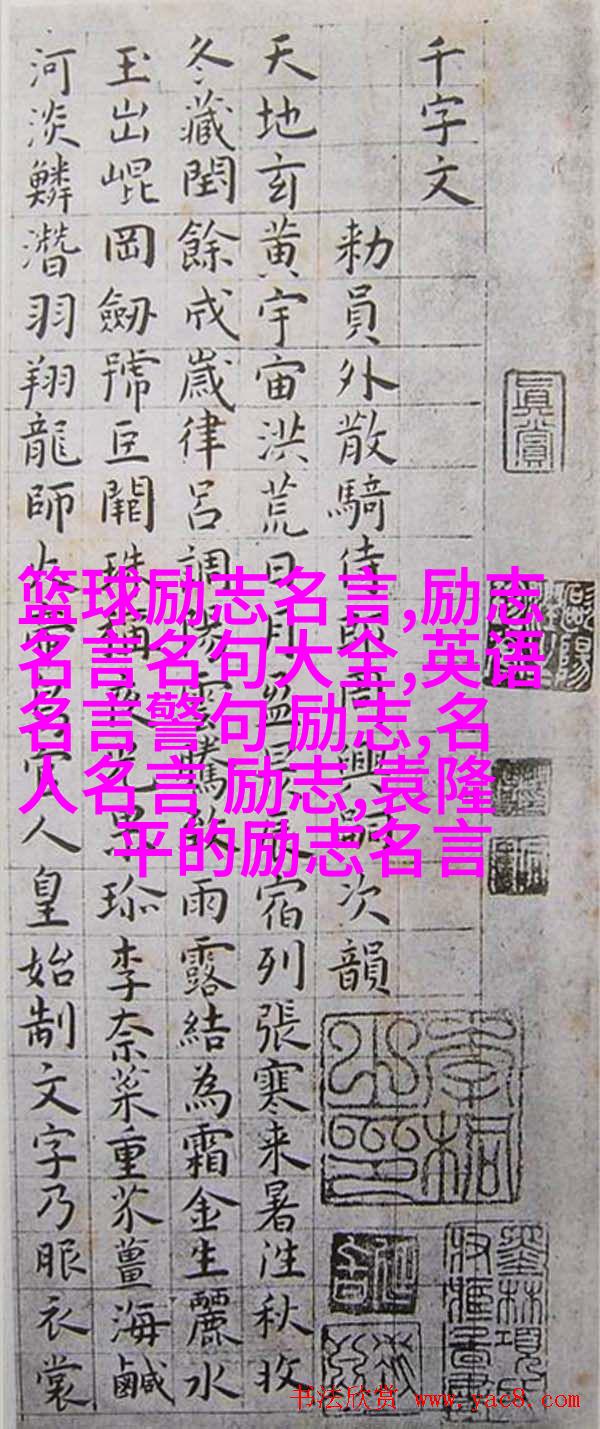 千字文
勑員外散騎侍郎周興嗣次韻
天地玄黄宇宙洪荒日月盈昃辰宿列張寒来暑往秋收
冬藏閏餘成歲律呂調陽雲騰致雨露結為霜金生麗水
玉出崐岡劒號巨闕珠稱夜光菓珎李柰菜重芥薑海鹹
河淡鱗潛羽翔龍師火帝鳥官人皇始制文字乃服衣裳
真賞
篮球励志名言,励志
名言名句大全,英语
名言警句 励志,名
人名言 励志,袁隆
平的励志名言
书法欣赏 www.yac8.com